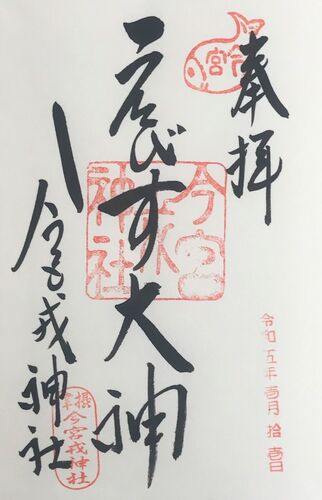 奉拝
今宮
ゑびす大神
今宮戎神社
今宮戎神社
今宮戎神社
令和五年壹月拾壹日